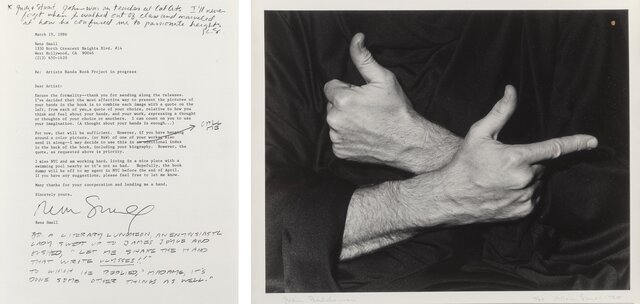 * Judy & Stuart John was an teacher at CalArts I'll never
forget when he walked out of class and
at how he confused me to passionate heights
March 19, 1986
Rena Small
1330 North Crescent Heights Blvd. #14
West Hollywood, CA 90046
(213) 650-1620
Re: Artists Hands Book Project in progress
Dear Artist:
Excuse the formality--thank you for sending along the releases.
I've decided that the most effective way to present the pictures of
your hands in the book is to combine each image with a quote on the
left, from each of you,a quote of your choice, relative to how you
think and feel about your hands, and your work, expressing a thought
or thoughts of your choice or anothers. I can count on you to use
your imagination. (A thought about your hands is enough...)
CALL
ME
For now, that will be sufficient. However, if you have hanging
around a color picture, (or B&W) of one of your works also
send it along-I may decide to use this in an additional index
in the back of the book, including your biography. However, the
quote, as requested above is priority.
I miss NYC and am working hard, living in a nice place with a
swimming pool nearby so it's not so bad. Hopefully, the book
dummy will be off to my agent in NYC before the end of April.
If you have any suggestions, please feel free to let me know.
Many thanks for your cooperation and lending me a hand.
Sincerely yours,
Rena Small
Rena Small
AT A LITERARY LUNCHEON, AN ENTHUSIASTIC
LADY SWEPT UP TO JAMES JOYCE AND
GUSHED, "LET ME SHAKE THE HAND
THAT WROTE ULYSSES!"
TO WHICH HE REPLIED, "MADAME, IT'S
DONE SOME OTHER THINGS AS WELL."
John Baldessari
Rena Small